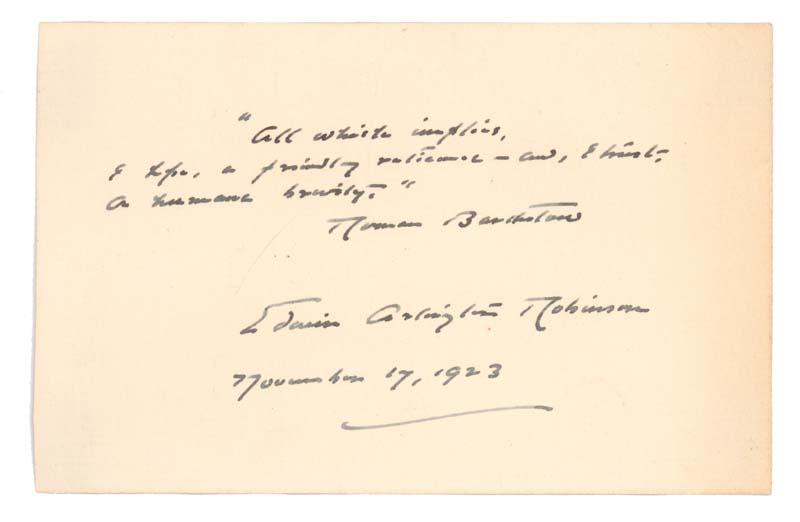 "All which implies,
I hope, a friendly reticence – and, I trust,
A humane brevity."
Roman Bartholow
Edwin Arlington Robinson
November 17, 1923